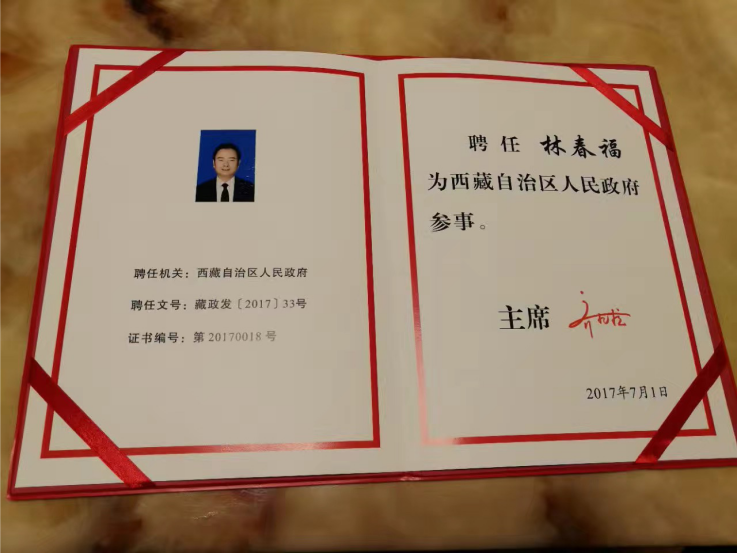 聘任机关：西藏自治区人民政府
聘任文号：藏政发〔2017〕33号
证书编号：第 20170018 号
聘任 林春福
为西藏自治区人民政府
参事。
主席
2017年7月1日